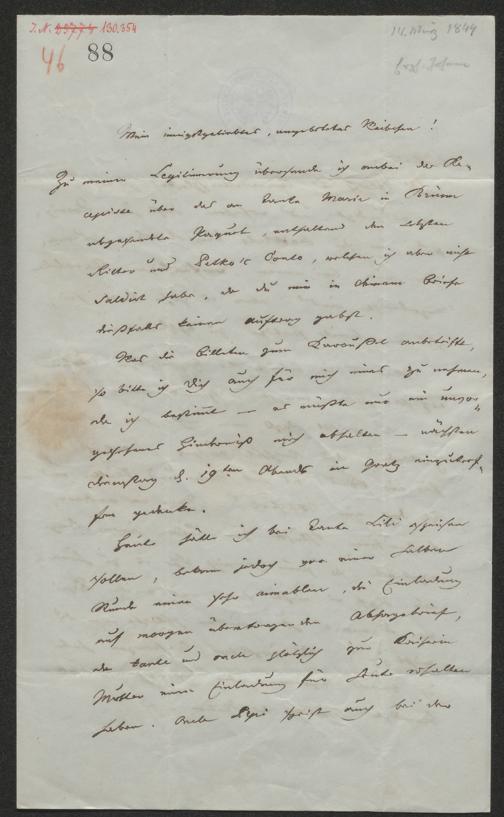 I.N. 23774 130.354
14. März 1849
46 88
Erzh. Johann
Mein innigstgeliebtes, angebetetes Weibchen!
Zu meiner Legitimirung übersende ich anbei das Re-
cepisse über das an Tante Marie in Brünn
abgesandte Paquet, enthaltend den letzten
Ritter und Petko's Conto, welchen ich aber nicht
saldirt habe, da du mir in deinem Briefe
dießfalls keinen Auftrag gabst.
Was die Billeten zum Caroussel anbetrifft,
so bitte ich dich auch für mich eines zu nehmen,
da ich bestimmt — es müßte nur ein unvor-
gesehenes Hinderniß mich abhalten — nächsten
Dienstag d. 19ten Abends in Gratz einzutref-
fen gedenke.
Heute hätte ich bei Tante Lili speisen
sollen, bekam jedoch vor einer halben
Stunde einen sehr aimablen, die Einladung
auf morgen übertragenden Absagebrief,
da Tante und Onkel plötzlich zur Kaiserin
Mutter eine Einladung für heute erhalten
haben. Onkel speist auch bei der